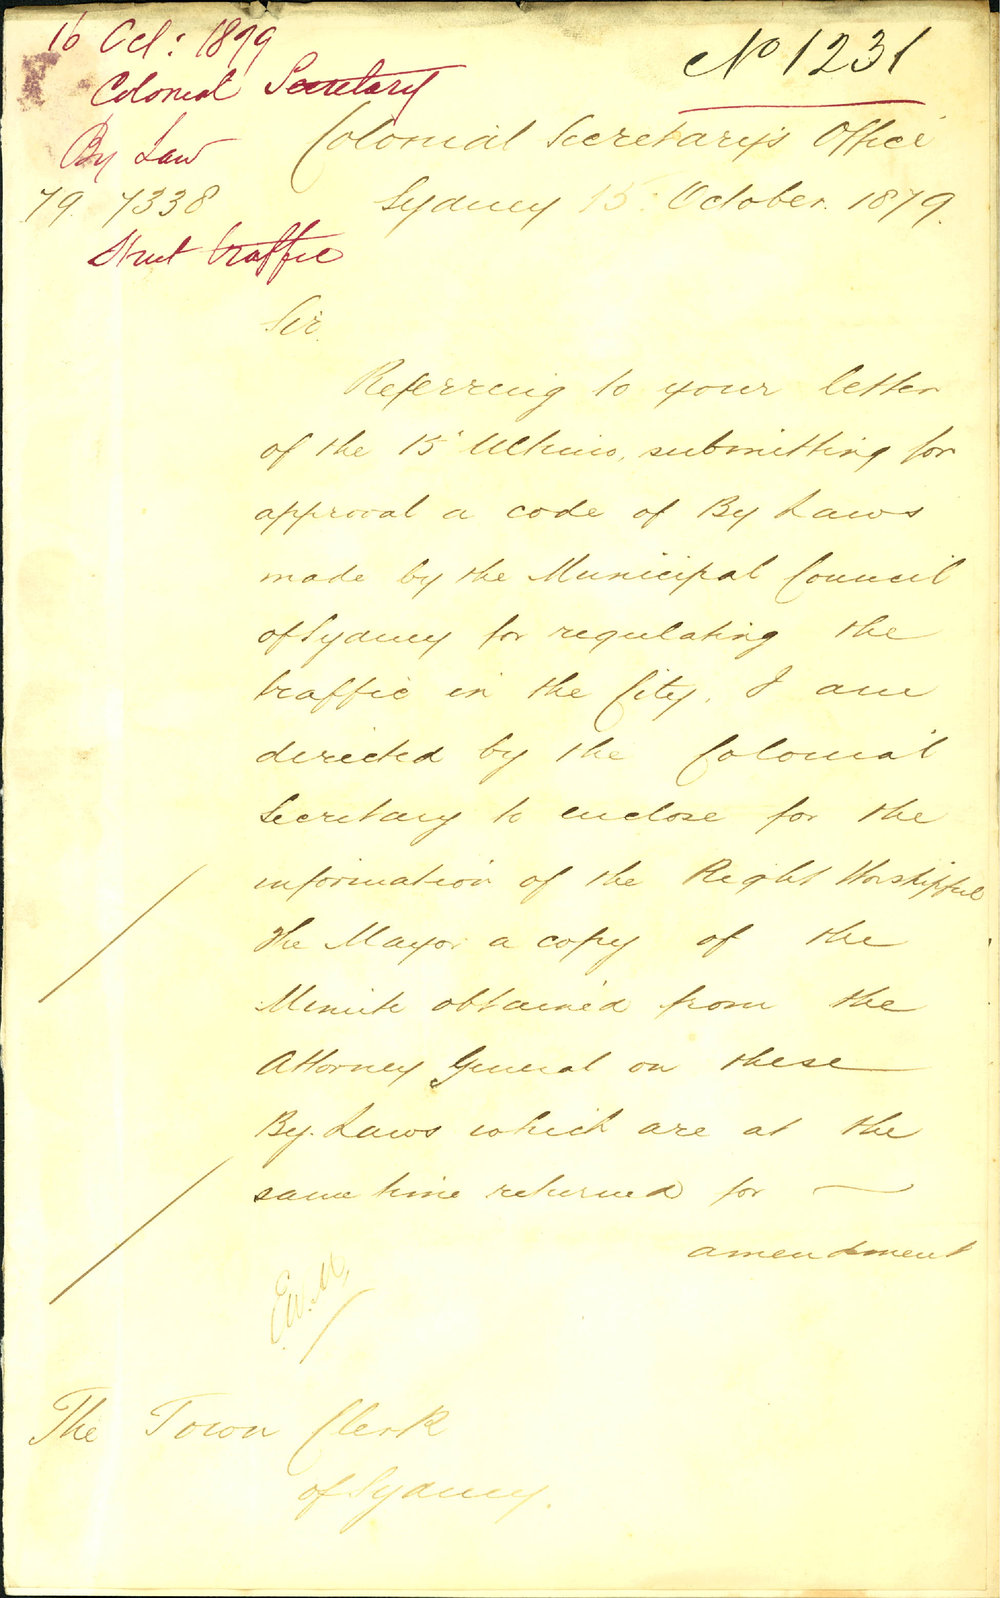 16 Oct: 1879
Colonial Secretary
By Law
79. 7338
Street traffic
No 1231
Colonial Secretary's Office
Sydney 15: October. 1879.
Sir.
Referring to your letter
of the 15' Ultimo, submitting for
approval a code of By Laws
made by the Municipal Council
of Sydney for regulating the
traffic in the City, I am
directed by the Colonial
Secretary to enclose for the
information of the Right Worshipful
The Mayor a copy of the
Minute obtained from the
Attorney General on these
By-Laws which are at the
same time returned for
amendment
E.W.M,
The Town Clerk
of Sydney.